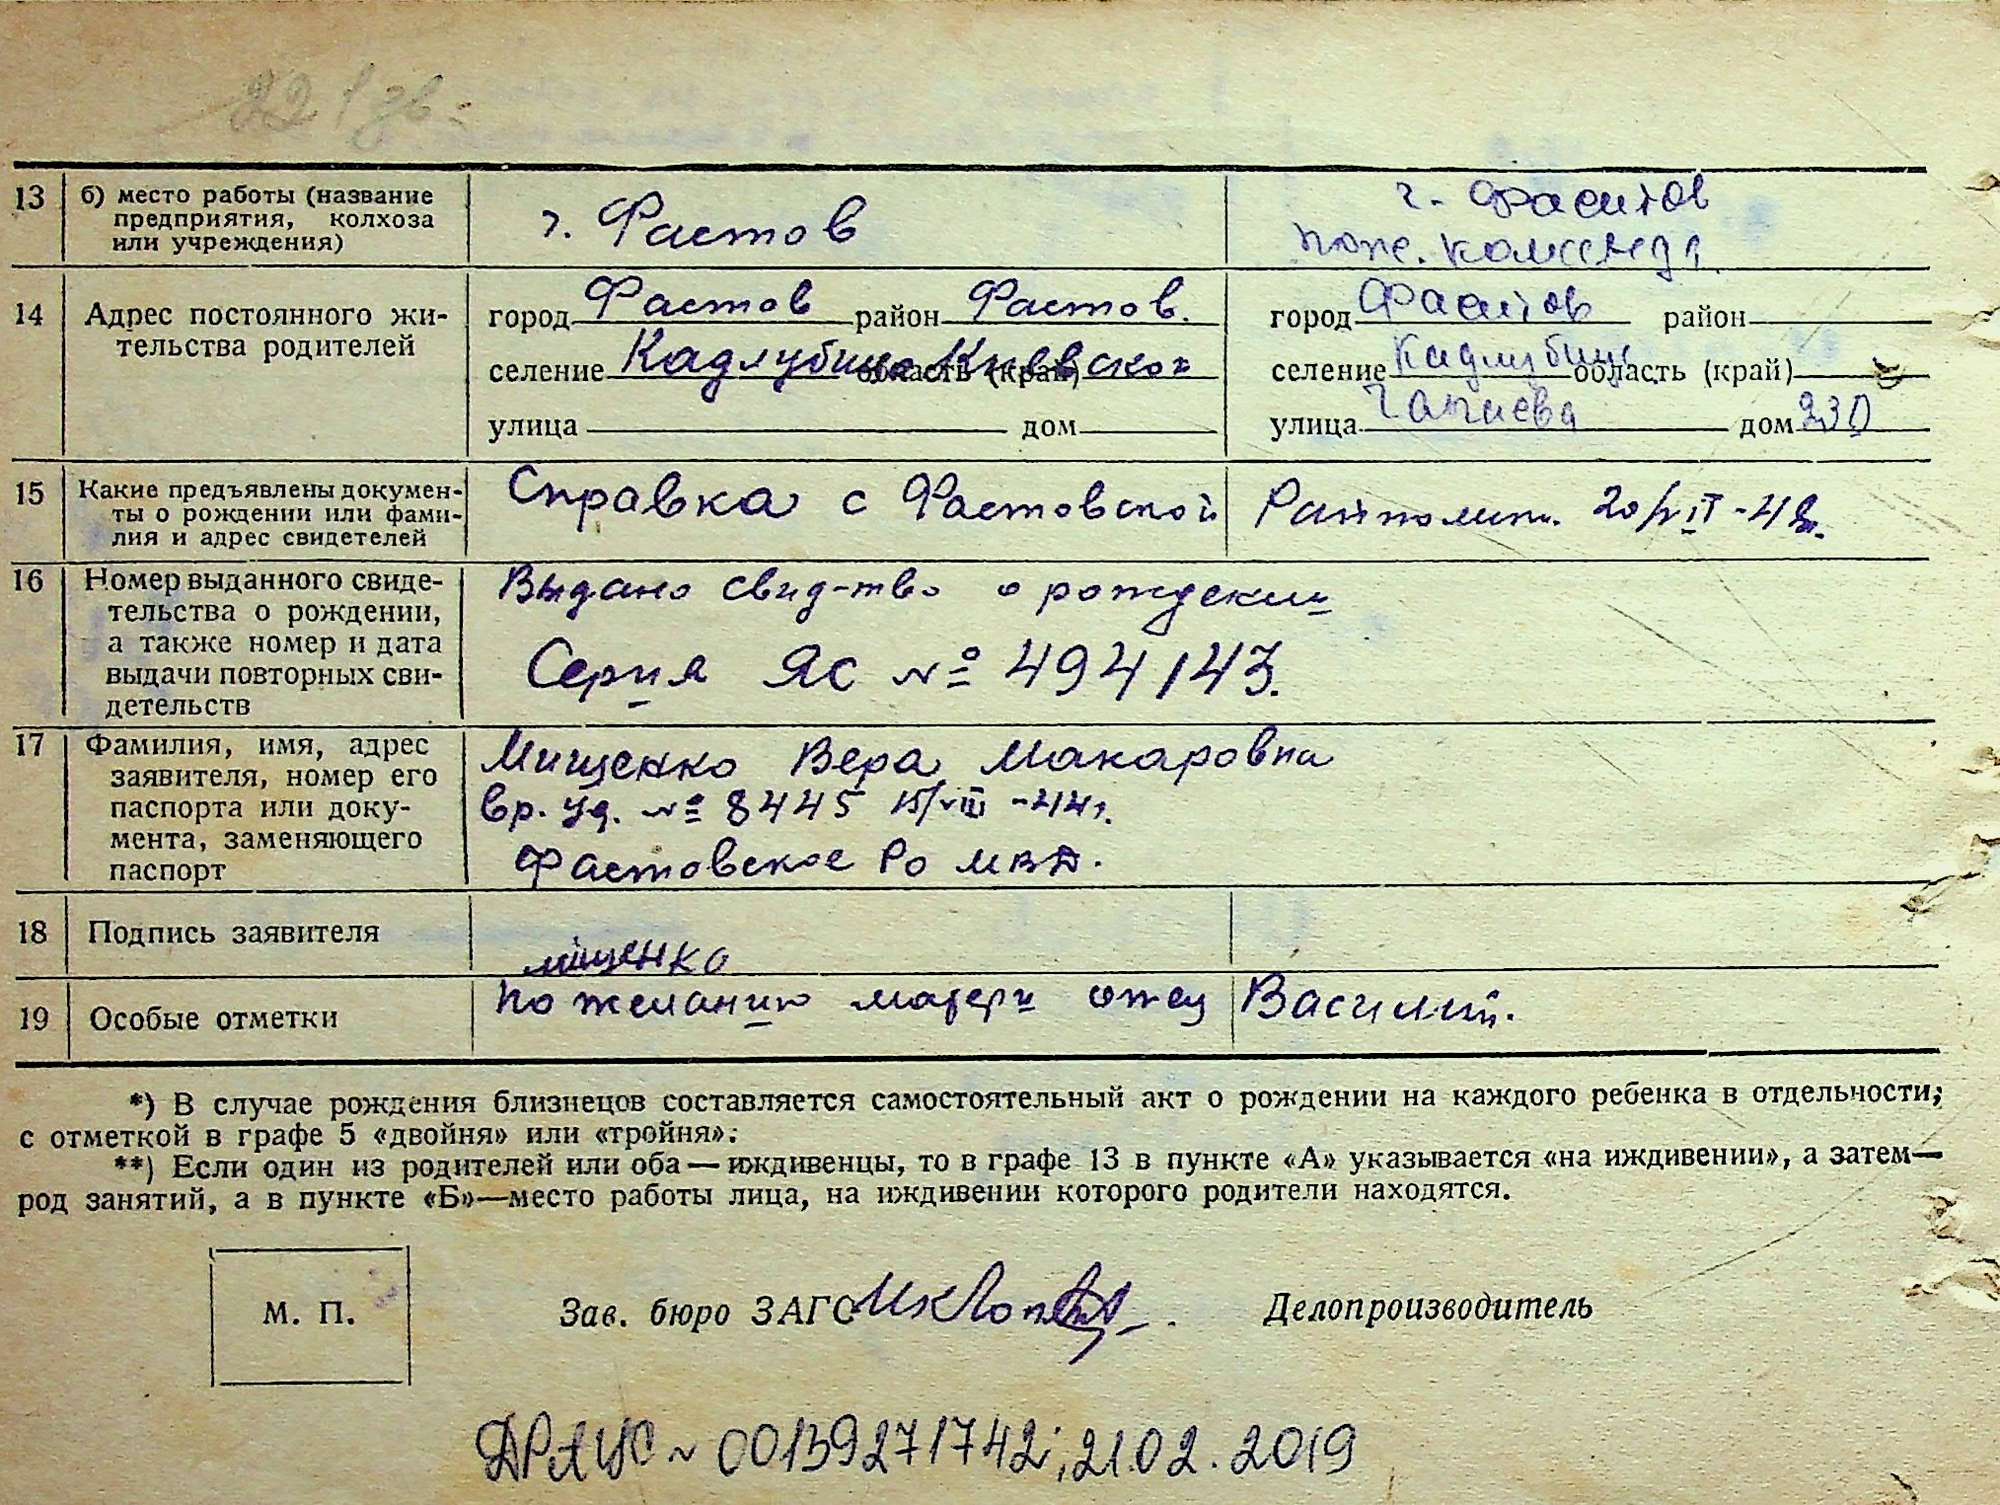 13 б) место работы (название предприятия, колхоза или учреждения) г. Фастов г. Фастов
пож. команда
14 Адрес постоянного жительства родителей
город Фастов район Фастов. город Фастов район
селение Кадлубица область (край) Киевской селение Кадлубица область (край)
улица дом улица Чапаева дом 230
15 Какие предъявлены документы о рождении или фамилия и адрес свидетелей Справка с Фастовской
16 Номер выданного свидетельства о рождении, а также номер и дата выдачи повторных свидетельств
Выдано свид-тво о рождении
Серия ЯС № 494143.
17 Фамилия, имя, адрес заявителя, номер его паспорта или документа, заменяющего паспорт
Мищенко Вера Макаровна
вр. уд. № 8445 15/VIII -44г.
Фастовское Ро МВД.
18 Подпись заявителя мищенко
19 Особые отметки по желанию матери отец Василий.
*) В случае рождения близнецов составляется самостоятельный акт о рождении на каждого ребенка в отдельности;
с отметкой в графе 5 «двойня» или «тройня».
**) Если один из родителей или оба — иждивенцы, то в графе 13 в пункте «А» указывается «на иждивении», а затем—
род занятий, а в пункте «Б»—место работы лица, на иждивении которого родители находятся.
М. П. Зав. бюро ЗАГС Делопроизводитель
ДРАЦС № 00139271742; 21.02.2019